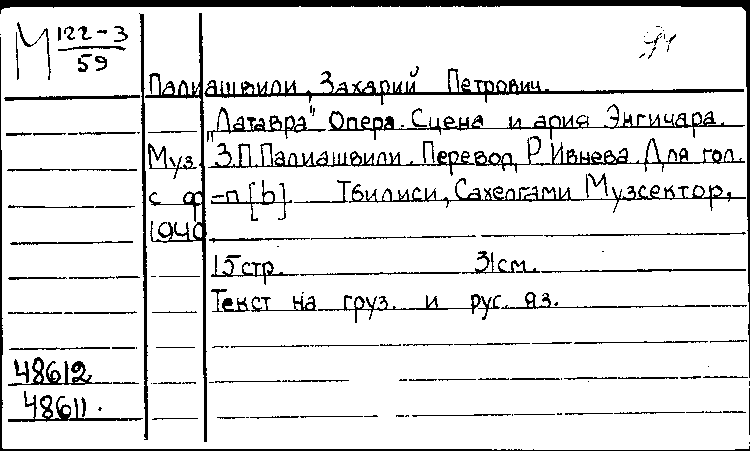 М 122-3
59
Палиашвили, Захарий Петрович.
"Латавра" Опера. Сцена и ария Энгичара.
Муз. З.П.Палиашвили. Перевод Р. Ивнева. Для гол.
с ф-п [b]. Тбилиси, Сахелгами Музсектор,
1940
15 стр. 31 см.
Текст на груз. и рус. яз.
48612
48611.